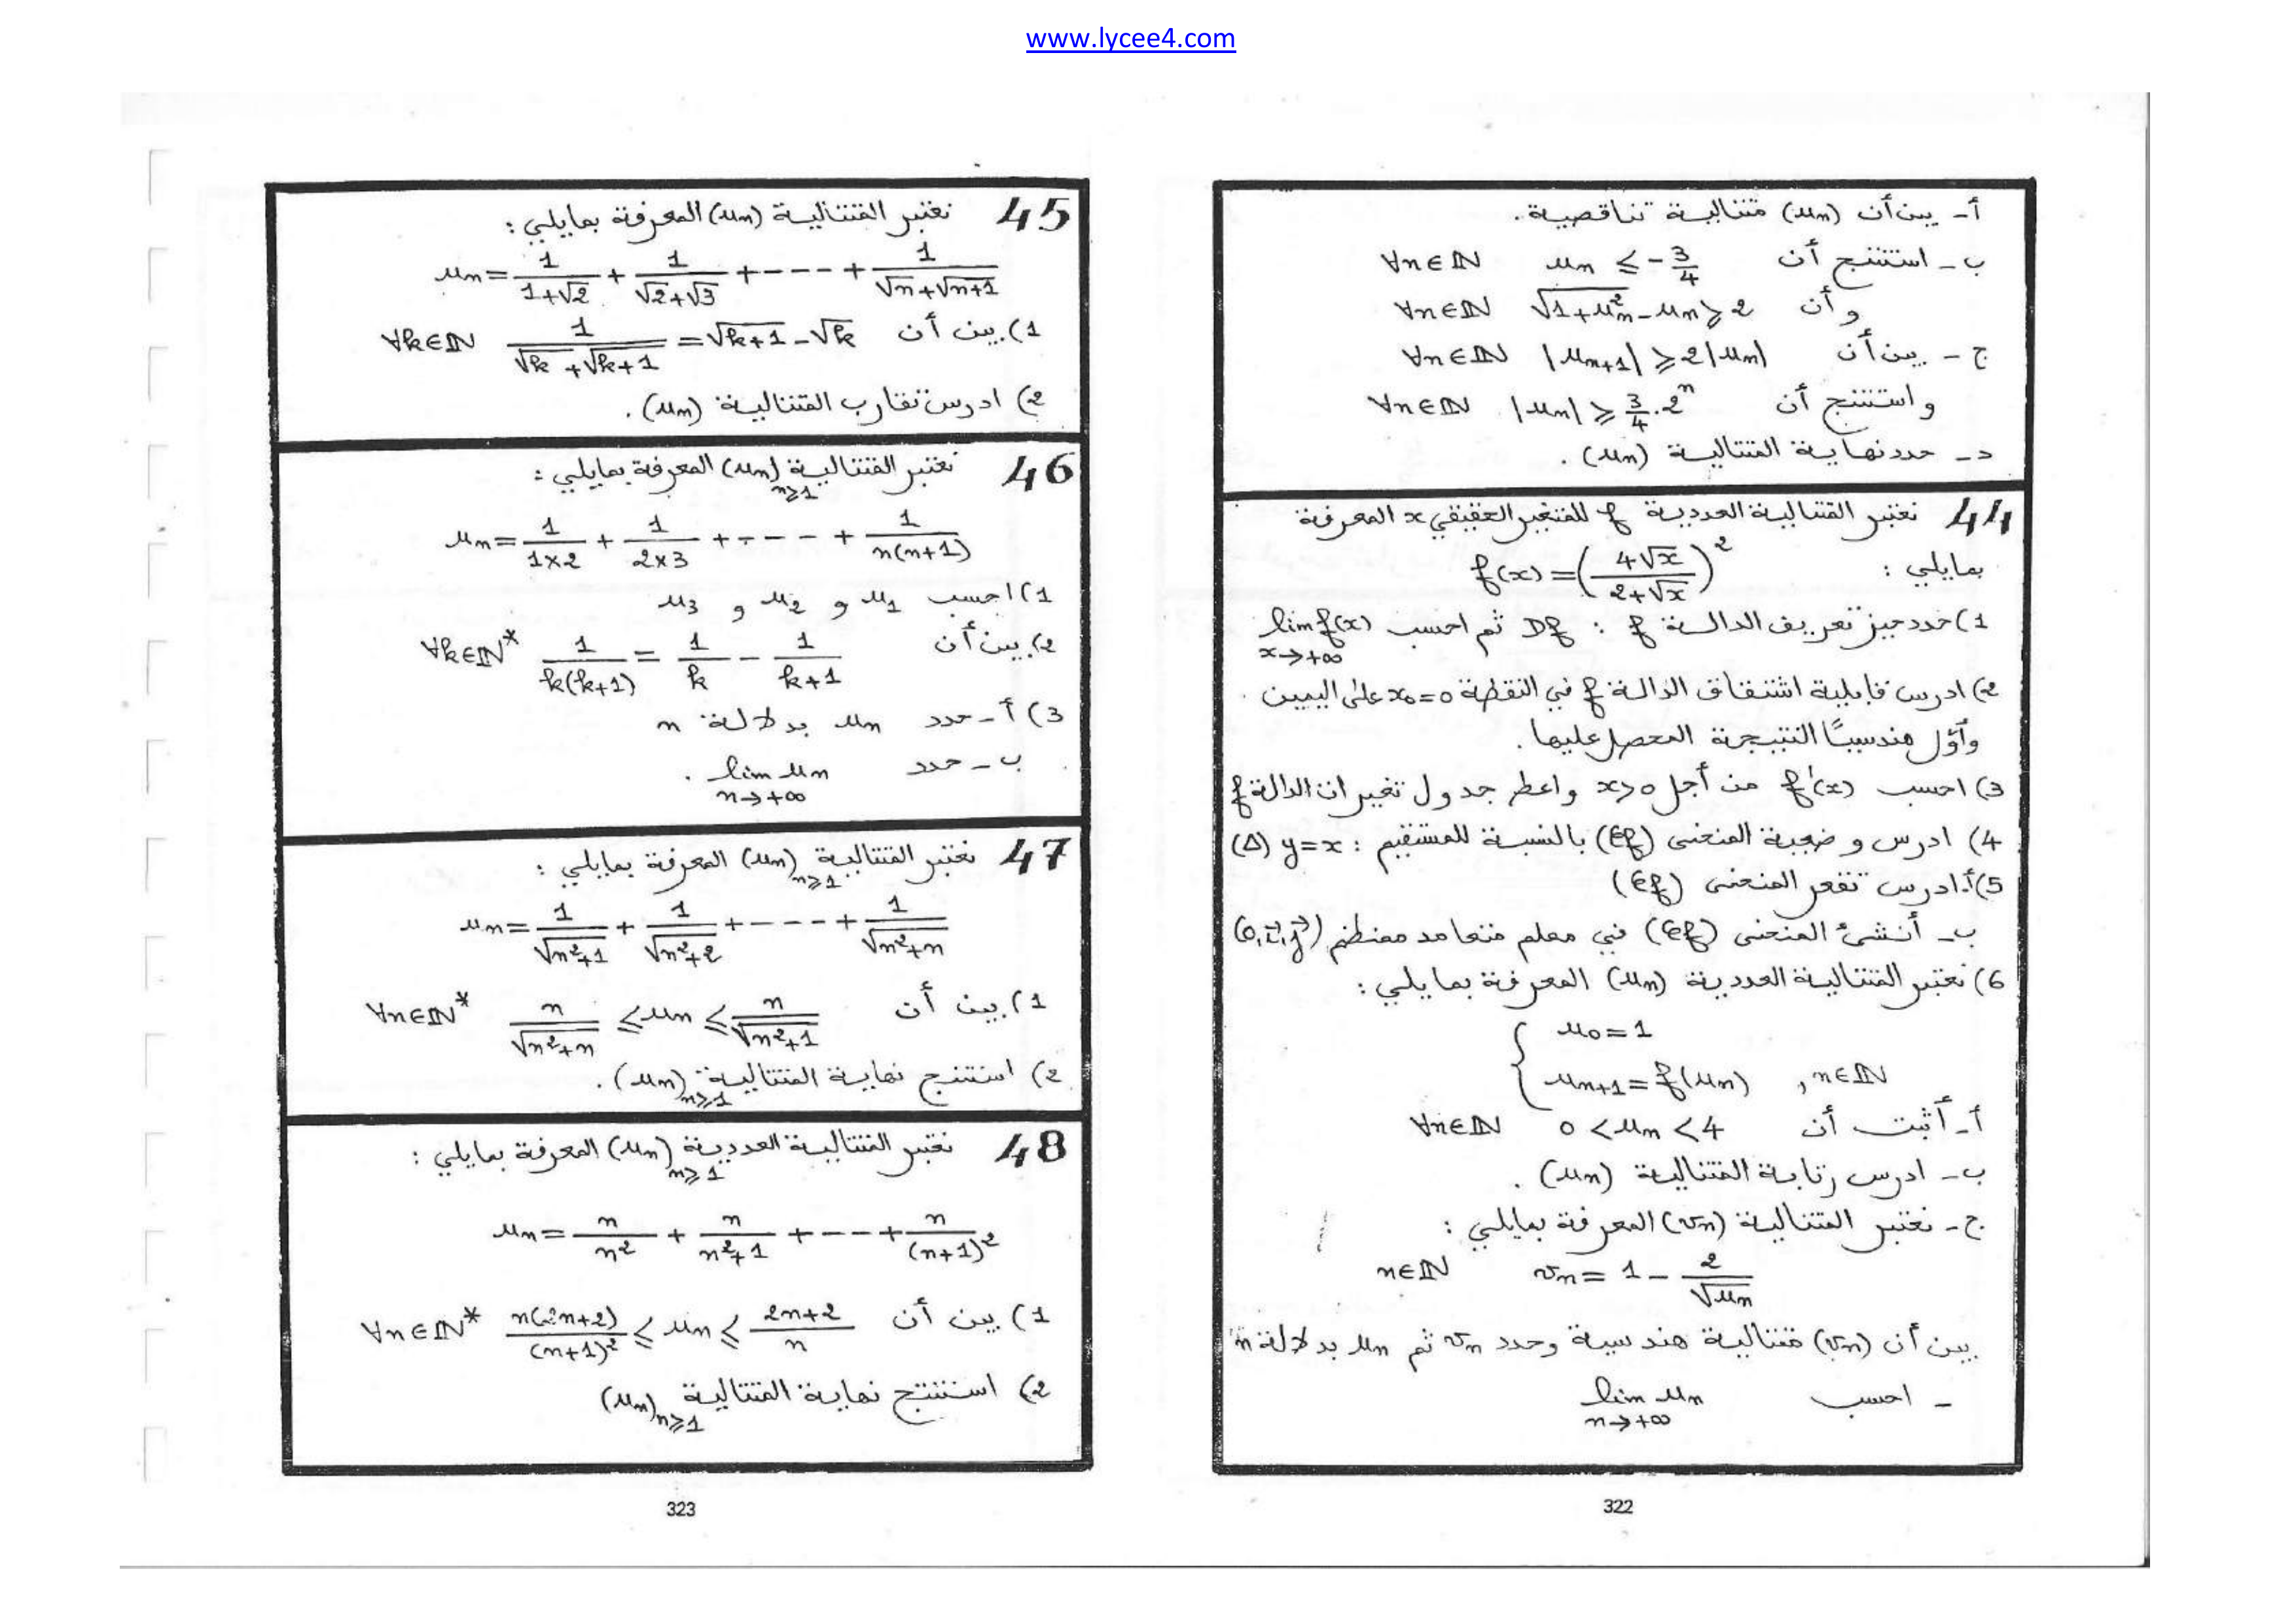 www.lycee4.com
أ- بين أن (uₙ) متتالية تناقصية.
ب- استنتج أن uₙ ≤ -3/4 ∀n∈ℕ
و أن √(1+uₙ²) - uₙ ≥ 2 ∀n∈ℕ
ج- بين أن |uₙ₊₁| ≥ 2|uₙ| ∀n∈ℕ
واستنتج أن |uₙ| ≥ 3/4 . 2ⁿ ∀n∈ℕ
د- حدد نهاية المتتالية (uₙ).
44 نعتبر المتتالية العددية f للمتغير الحقيقي x المعرفة
بمايلي : f(x) = (4√x / (2+√x))²
1) حدد حيز تعريف الدالة f : Df ثم احسب lim f(x) x→+∞
2) ادرس قابلية اشتقاق الدالة f في النقطة x₀=0 على اليمين
وأوّل هندسيًا النتيجة المحصل عليها.
3) احسب f'(x) من أجل x>0 واعط جدول تغيرات الدالة f
4) ادرس وضعية المنحنى (Cf) بالنسبة للمستقيم : y=x (Δ)
5) أ. ادرس تقعر المنحنى (Cf)
ب- أنشئ المنحنى (Cf) في معلم متعامد ممنظم (o,i⃗,j⃗)
6) نعتبر المتتالية العددية (uₙ) المعرفة بمايلي :
{ u₀=1
uₙ₊₁ = f(uₙ) , n∈ℕ
أ- أثبت أن 0 < uₙ < 4 ∀n∈ℕ
ب- ادرس رتابة المتتالية (uₙ).
ج- نعتبر المتتالية (vₙ) المعرفة بمايلي :
vₙ = 1 - 2/√uₙ n∈ℕ
بين أن (vₙ) متتالية هندسية وحدد vₙ ثم uₙ بدلالة n
- احسب lim uₙ n→+∞
322
45 نعتبر المتتالية (uₙ) المعرفة بمايلي :
uₙ = 1/(1+√2) + 1/(√2+√3) + ---- + 1/(√n+√(n+1))
1) بين أن 1/(√k+√(k+1)) = √(k+1) - √k ∀k∈ℕ
2) ادرس تقارب المتتالية (uₙ).
46 نعتبر المتتالية (uₙ) n≥1 المعرفة بمايلي :
uₙ = 1/(1×2) + 1/(2×3) + ---- + 1/(n(n+1))
1) احسب u₁ و u₂ و u₃
2) بين أن 1/(k(k+1)) = 1/k - 1/(k+1) ∀k∈ℕ*
3) أ- حدد uₙ بدلالة n
ب- حدد lim uₙ n→+∞ .
47 نعتبر المتتالية (uₙ) n≥1 المعرفة بمايلي :
uₙ = 1/√(n²+1) + 1/√(n²+2) + ---- + 1/√(n²+n)
1) بين أن n/√(n²+n) ≤ uₙ ≤ n/√(n²+1) ∀n∈ℕ*
2) استنتج نهاية المتتالية (uₙ) n≥1 .
48 نعتبر المتتالية العددية (uₙ) n≥1 المعرفة بمايلي :
uₙ = n/n² + n/(n²+1) + --- + n/(n+1)²
1) بين أن n(2n+2)/(n+1)² ≤ uₙ ≤ (2n+2)/n ∀n∈ℕ*
2) استنتج نهاية المتتالية (uₙ) n≥1
323